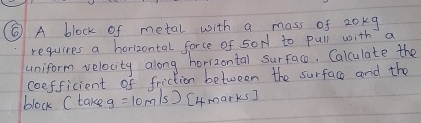 ⑥ A block of metal with a mass of 20kg
requires a horizontal force of 50N to pull with a
uniform velocity along horizontal surface. Calculate the
coefficient of friction between the surface and the
block (take g = 10m/s) [4 marks]